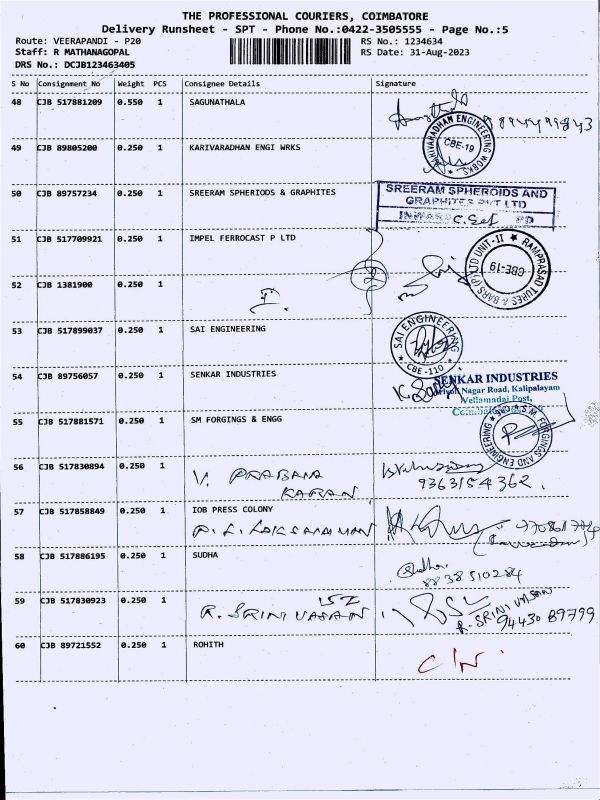 THE PROFESSIONAL COURIERS, COIMBATORE
Delivery Runsheet - SPT - Phone No.:0422-3505555 - Page No.:5
Route: VEERAPANDI - P20 RS No.: 1234634
Staff: R MATHANAGOPAL RS Date: 31-Aug-2023
DRS No.: DCJB123463405
S No Consignment No Weight PCS Consignee Details Signature
48 CJB 517881209 0.550 1 SAGUNATHALA
49 CJB 89805200 0.250 1 KARIVARADHAN ENGI WRKS
KARIVARADHAN ENGINEERING WORKS
CBE-19
50 CJB 89757234 0.250 1 SREERAM SPHERIODS & GRAPHITES
SREERAM SPHEROIDS AND
GRAPHITES PVT LTD
INWARD
51 CJB 517709921 0.250 1 IMPEL FERROCAST P LTD
RAMPRASAD TUBES & BARS (P) LTD UNIT-II
CBE-19
52 CJB 1381900 0.250 1
53 CJB 517899037 0.250 1 SAI ENGINEERING
SAI ENGINEERING
CBE-110
54 CJB 89756057 0.250 1 SENKAR INDUSTRIES
SENKAR INDUSTRIES
Nagar Road, Kalipalayam
Vellamadai Post,
55 CJB 517881571 0.250 1 SM FORGINGS & ENGG
S.M. FORGINGS AND ENGINEERING
56 CJB 517830894 0.250 1 V. PRABANA
KARAN
9363154362.
57 CJB 517858849 0.250 1 IOB PRESS COLONY
58 CJB 517886195 0.250 1 SUDHA
Sudha
8838510284
59 CJB 517830923 0.250 1 R. SRINIVASAN 152
R. SRINIVASAN
94430 89799
60 CJB 89721552 0.250 1 ROHITH